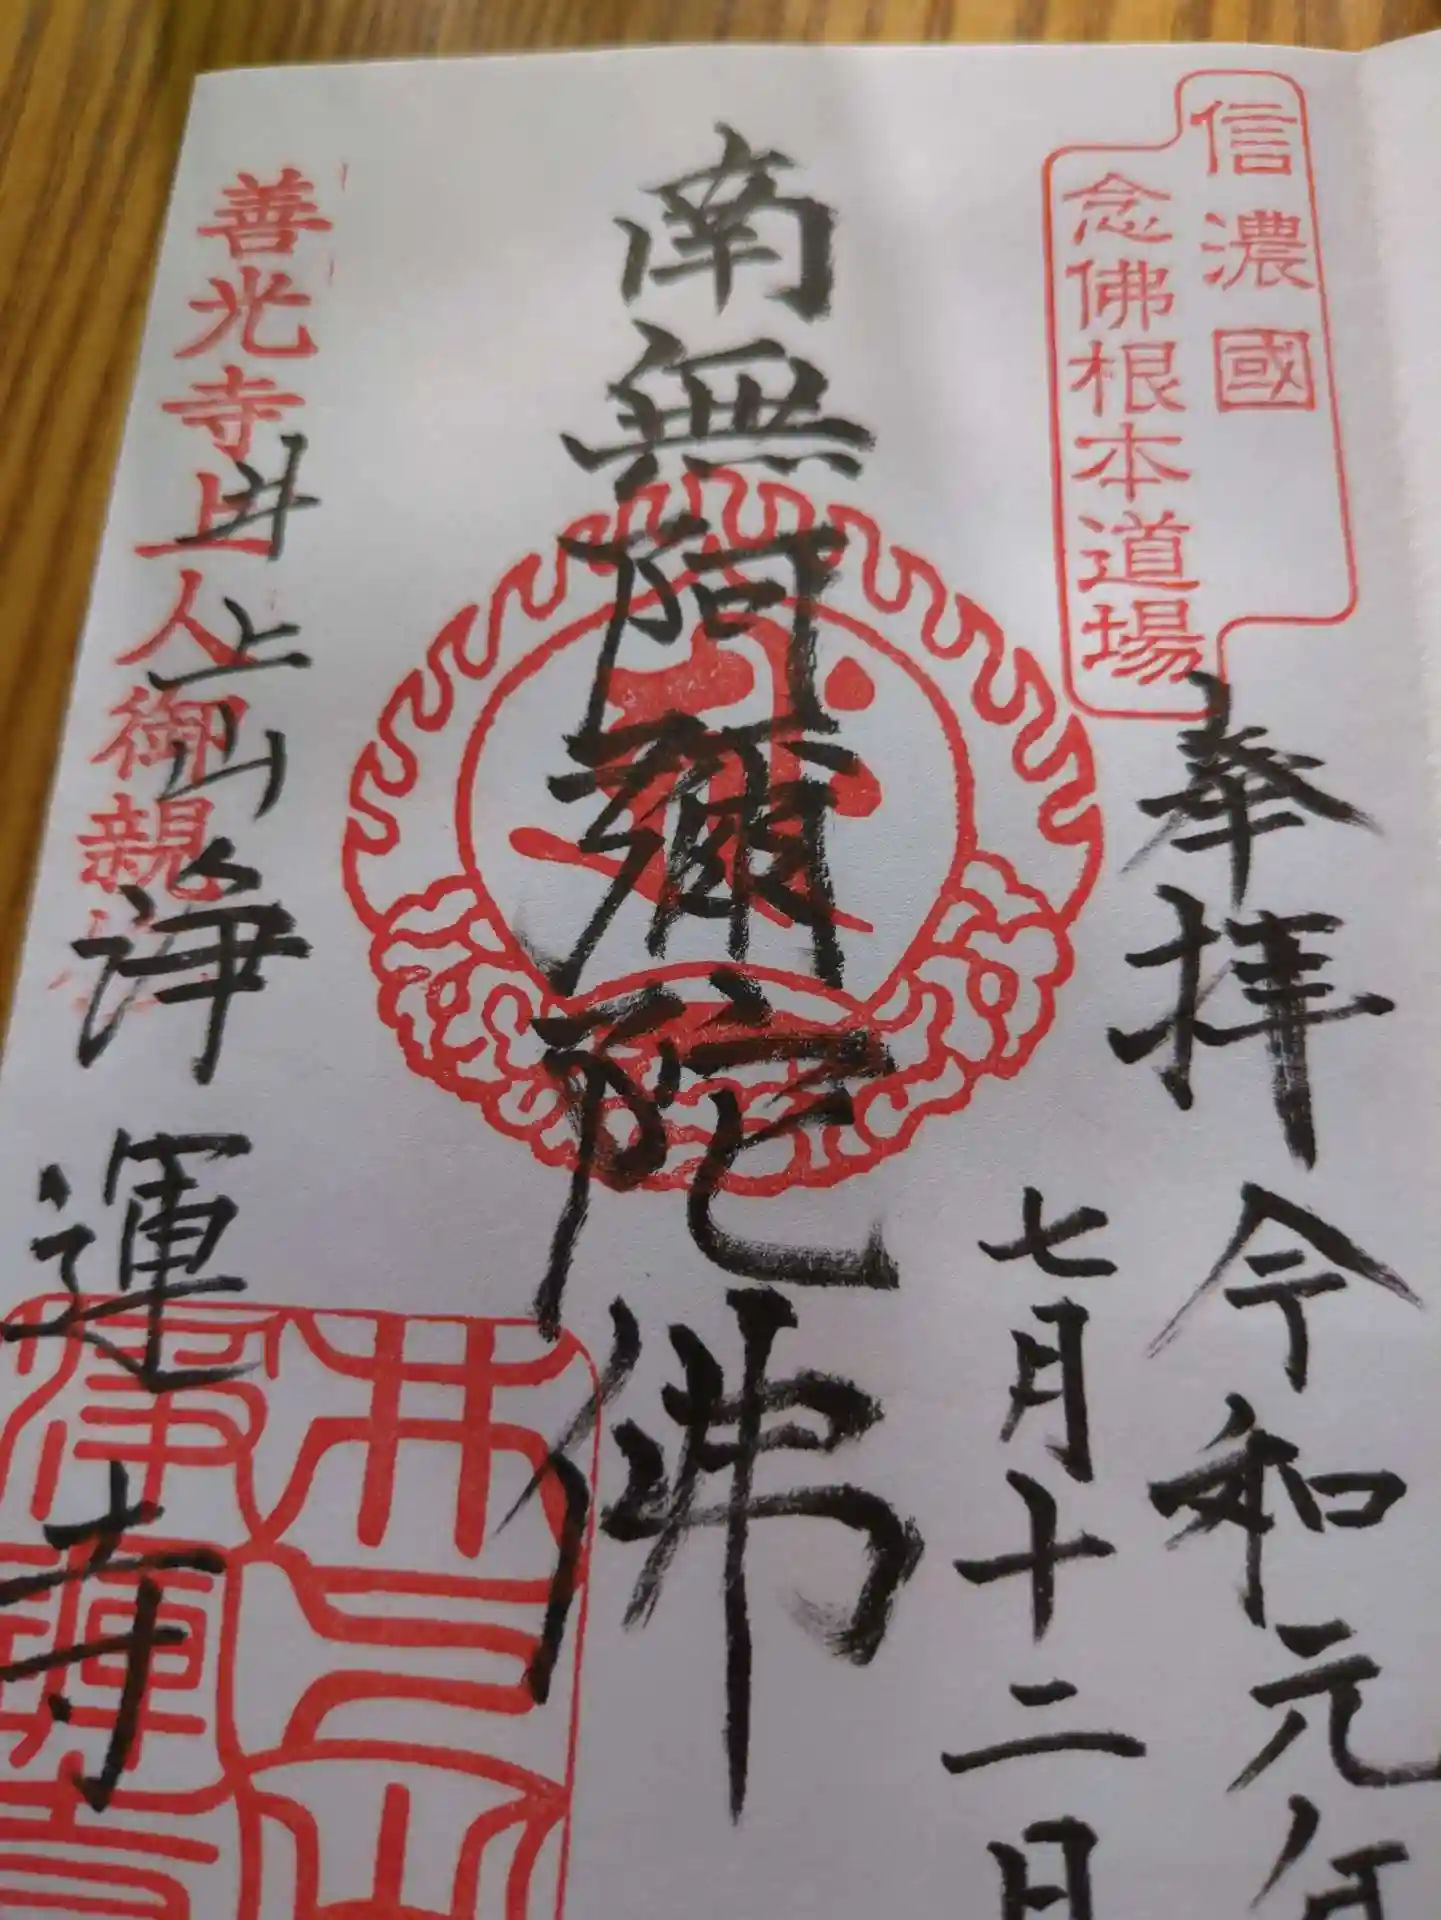 信濃國
念佛根本道場
奉拝
令和元年
七月十二日
南無阿彌陀佛
善光寺上人御親
井上山浄運寺
井上山
浄運寺